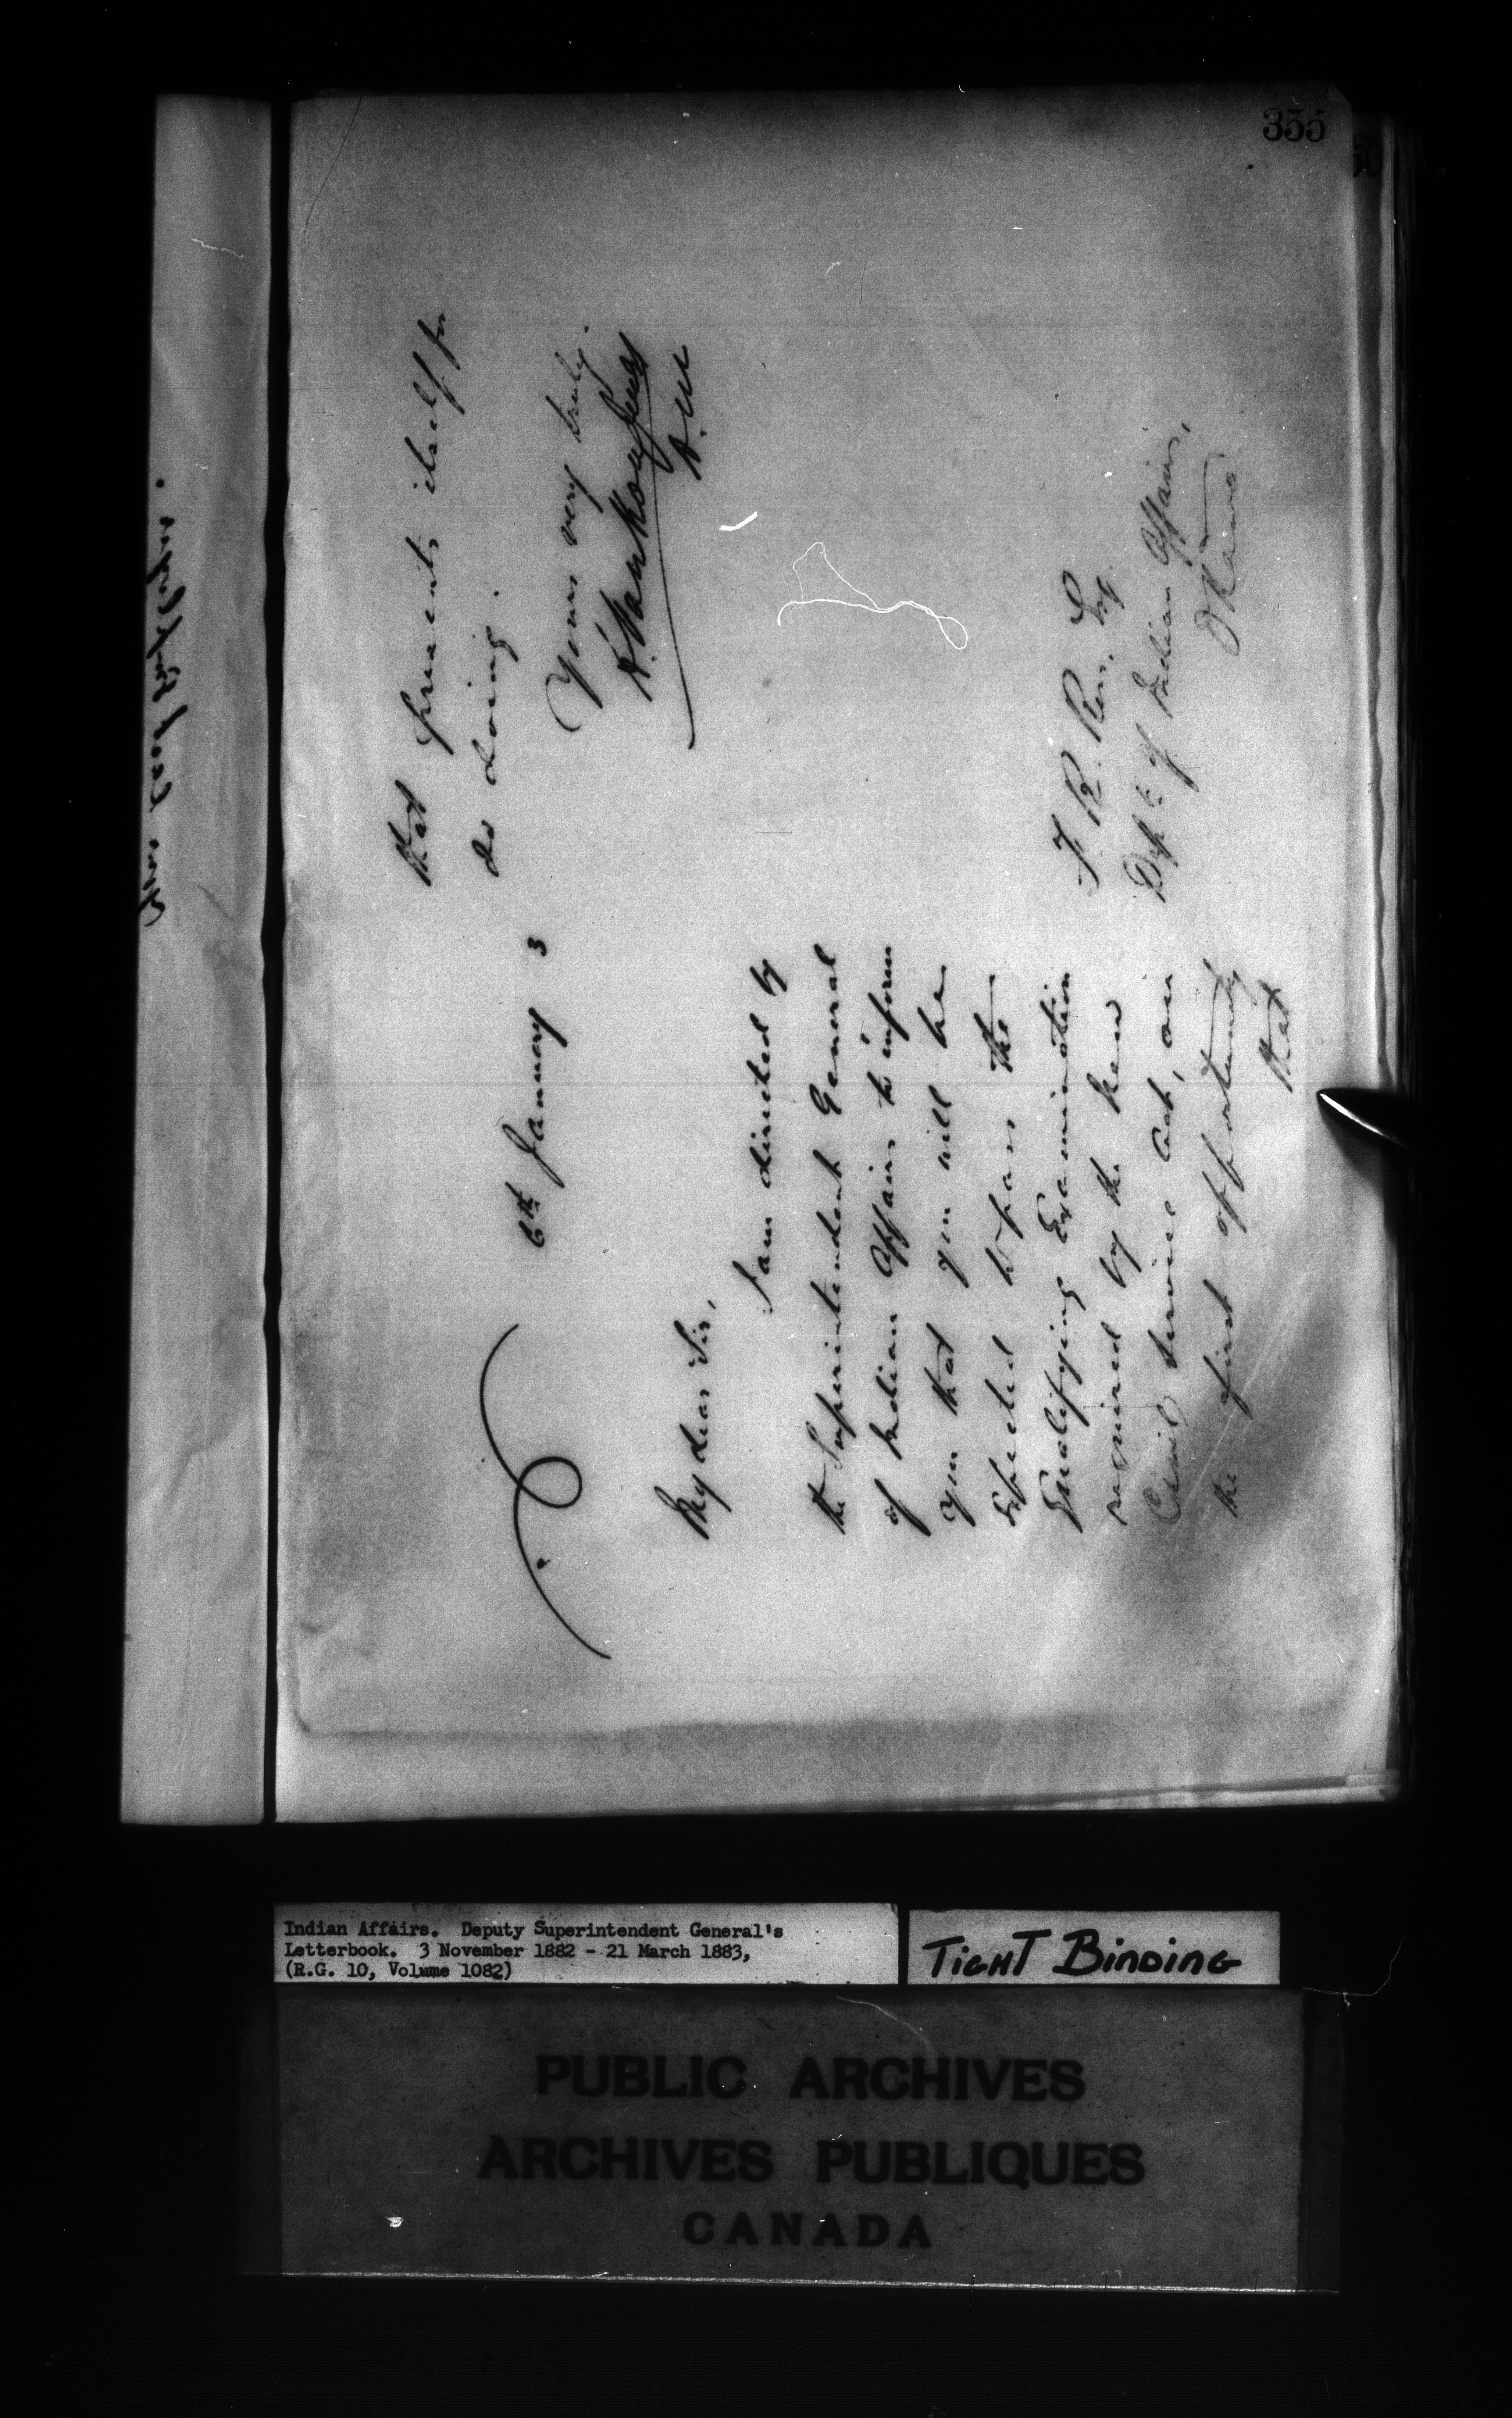 355
6th January 3
My dear Sir,
I am directed by
the Superintendent General
of Indian Affairs to inform
you that you will be
expected to pass the
Qualifying Examination
required by the new
Civil Service Act, on
the first opportunity
that
that presents itself for
so doing.
Yours very truly.
L. Vankoughnet
D.
Esq
Dept. of Indian Affairs,
Ottawa
Indian Affairs. Deputy Superintendent General's
Letterbook. 3 November 1882 - 21 March 1883,
(R.G. 10, Volume 1082)
TIGHT BINDING
PUBLIC ARCHIVES
ARCHIVES PUBLIQUES
CANADA